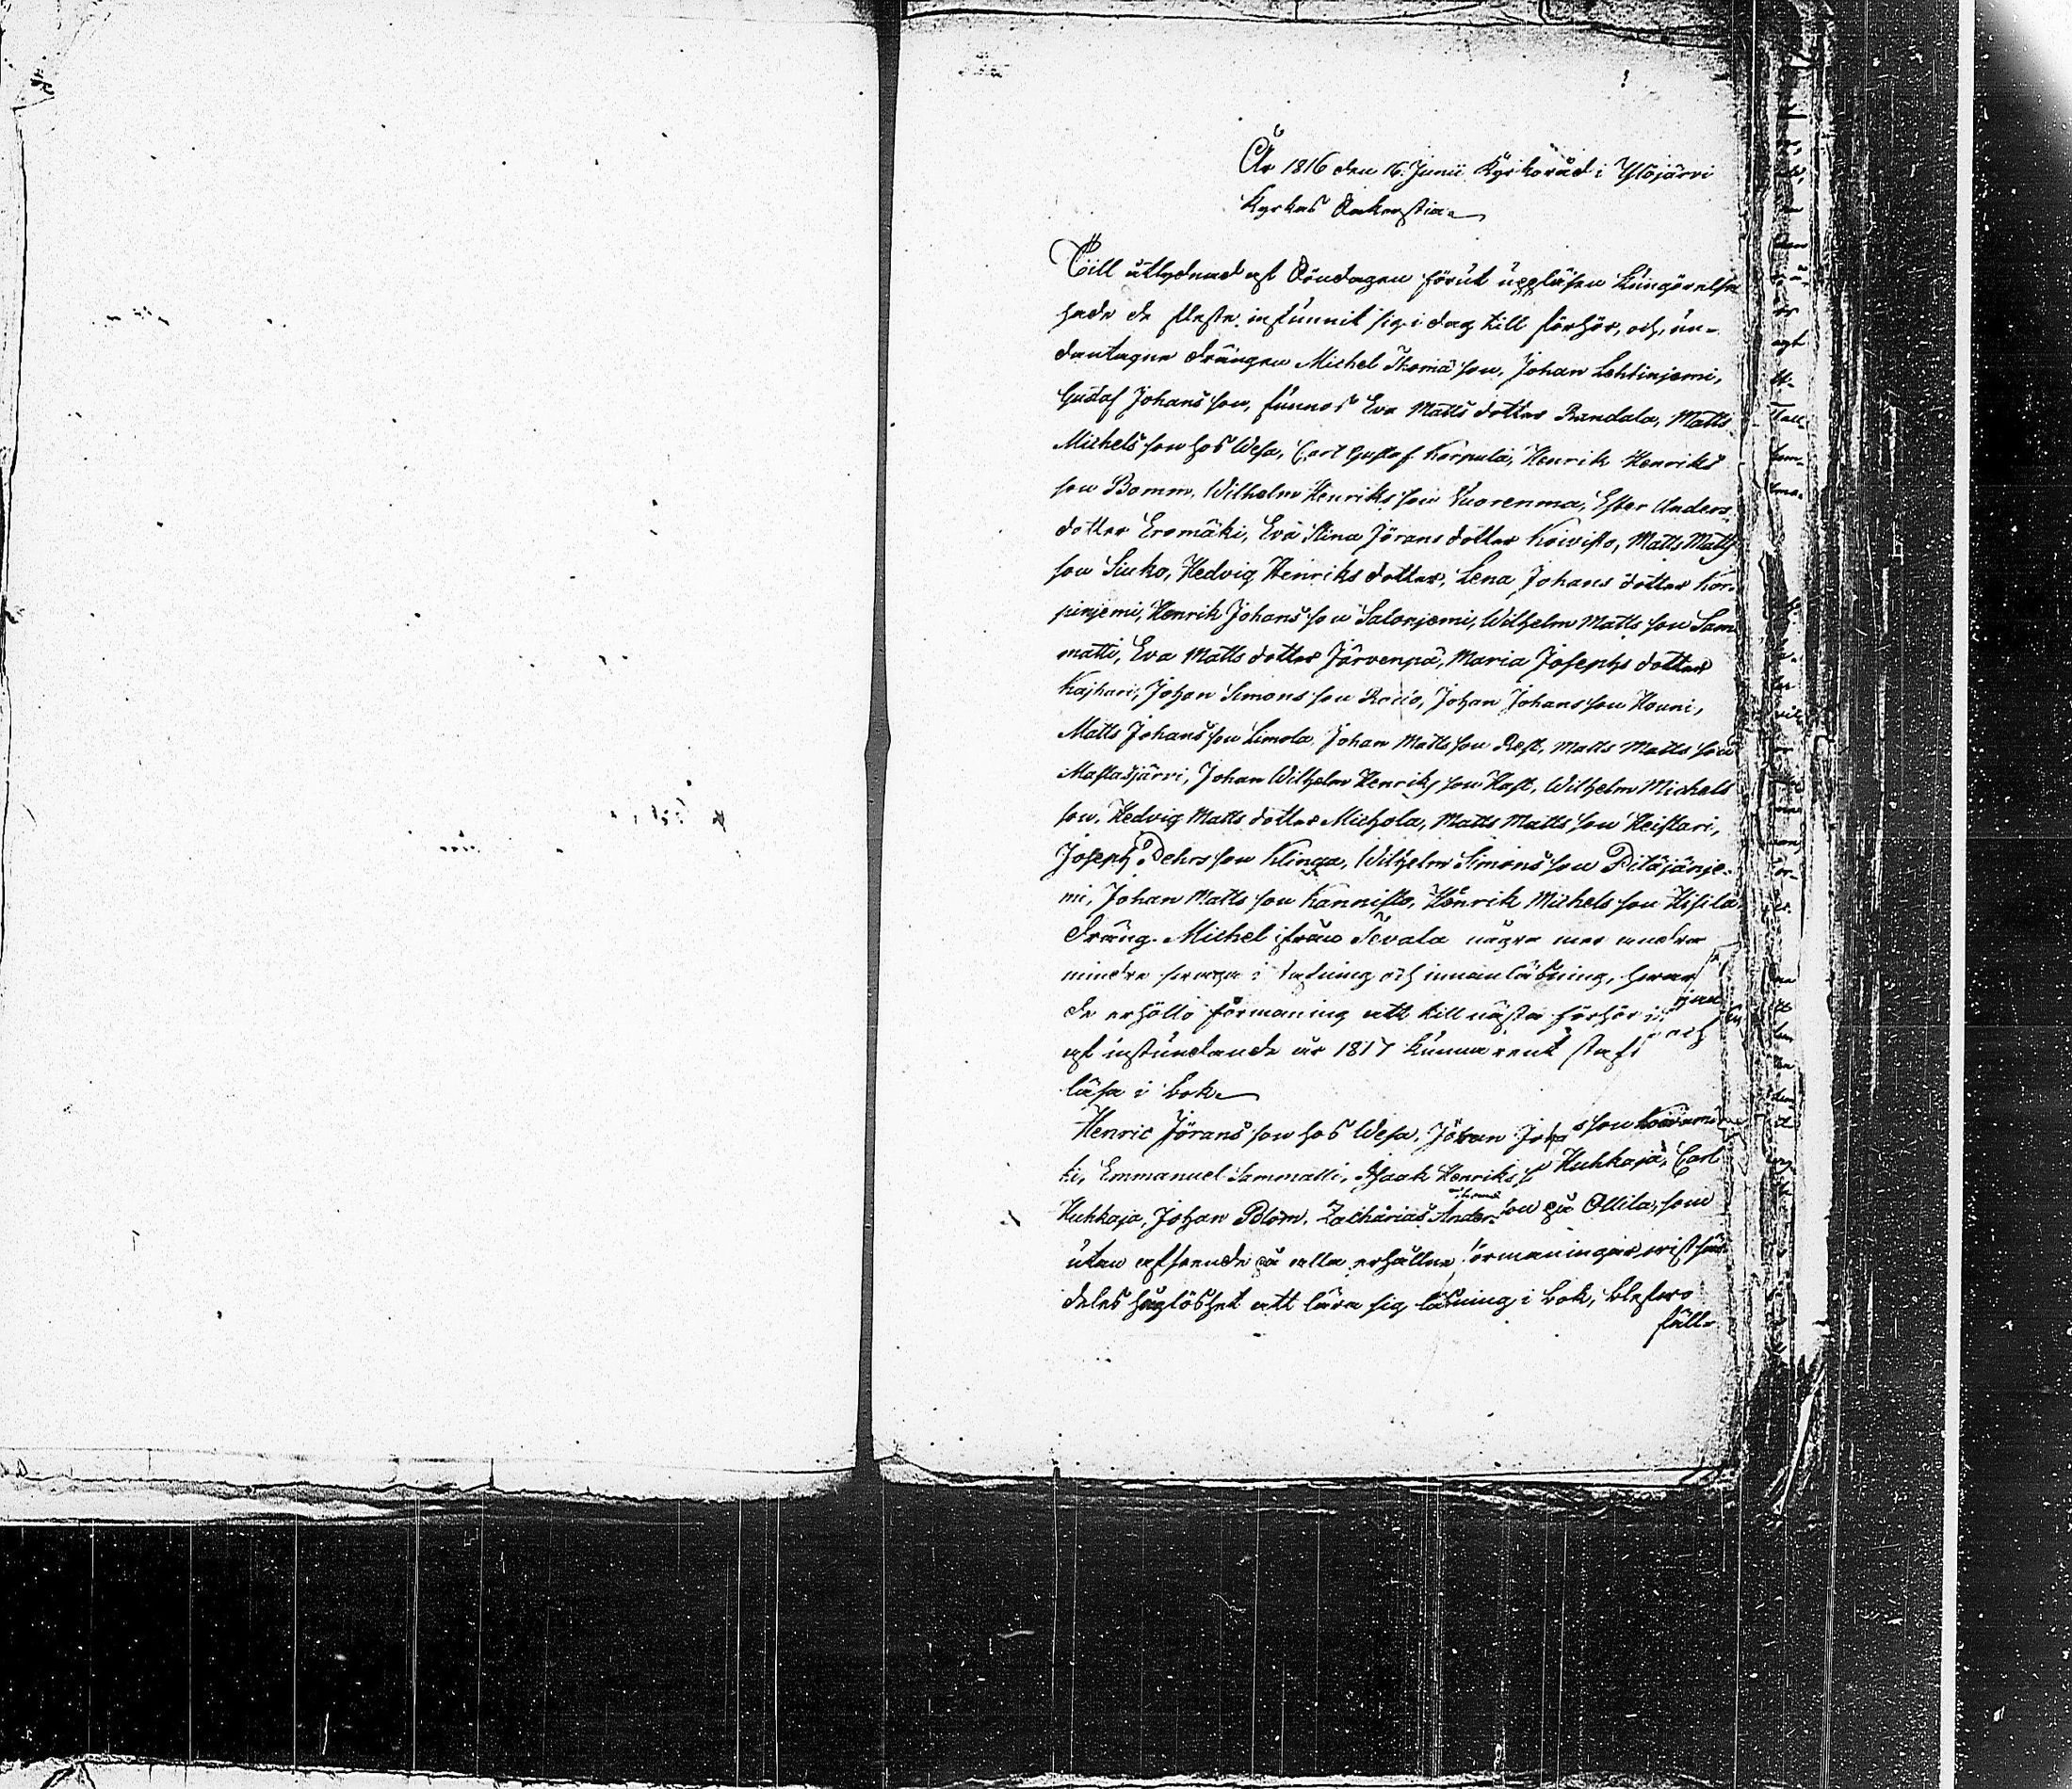 År 1816 den 16. Junii Kyrkoråd i Ylöjärvi
Kyrkas Sakerstia.
Till åtlydnad af Söndagen förut uppläsen Kungörelse
hade de fleste infunnit sig i dag till förhör, och, un-
dantagne drängen Michel Thomä son, Johan Lehtinjemi,
Gustaf Johans son, funnos Eva Matts dotter Randala, Matts
Michels son hos Wesa, Carl Gustaf Korpula, Henrik Henriks
son Bomm, Wilhelm Henriks son Vuorenma, Ester Anders
dotter Eromäki, Eva Stina Jörans dotter Koivisto, Matts Matts
son Siuko, Hedvig Henriks dotter, Lena Johans dotter Kor-
pinjemi, Henrik Johans son Salonjemi, Wilhelm Matts son Sam
matti, Eva Matts dotter Järvenpä, Maria Josephs dotter
Kajhari, Johan Simons son Johan Johans son Houni,
Matts Johans son Limola Johan Matts son Rest, Matts Matts son
Mastasjärvi, Johan Wilhelm Henriks son Hast, Wilhelm Michels
son, Hedvig Matts dotter Michola, Matts Matts son Heistari,
Joseph Pehrs son Klinga, Wilhelm Simons son Pitäjänje-
mi, Johan Matts son Kannisto, Henrik Michels son Hisila
dräng Michel ifrån Sevala några mer andra
mindre svaga i stafning och innanläsning, hvar
de erhöllo förmaning att till nästa förhör i
af instundande år 1817 kunna rent stafi och
läsa i bok.
Henric Jörans son hos Wesa, Johan Joh s son
ki, Emmanuel Sammatti, Isaak Henriks s Huhkaja, Carl
Huhkaja, Johan Blom, Zacharias Anders son på Ollila, som
utan afseende på alla erhållne förmaningar vist sär
deles håglöshet att lära sig läsning i bok, blefvo
fäll-